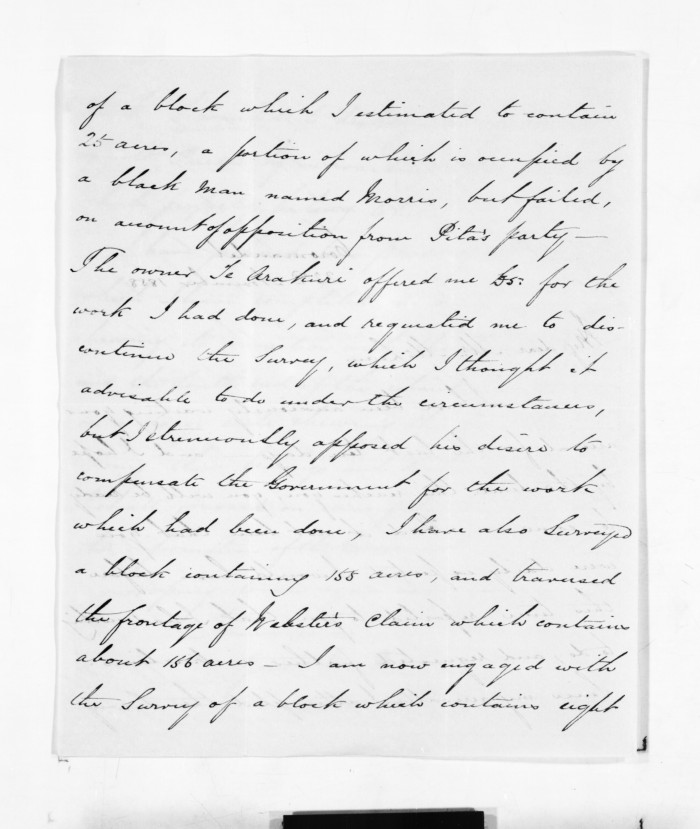 of a block which I estimated to contain
25 acres, a portion of which is occupied by
a black man named Morris, but failed,
on account of opposition from Pita's party —
The owner Te Arakuri offered me £5: for the
work I had done, and requested me to dis-
continue the Survey, which I thought it
advisable to do under the circumstances,
but I strenuously opposed his desire to
compensate the Government for the work
which had been done, I have also Surveyed
a block containing 155 acres, and traversed
the frontage of Webster's Claim which contains
about 156 acres — I am now engaged with
the Survey of a block which contains eight